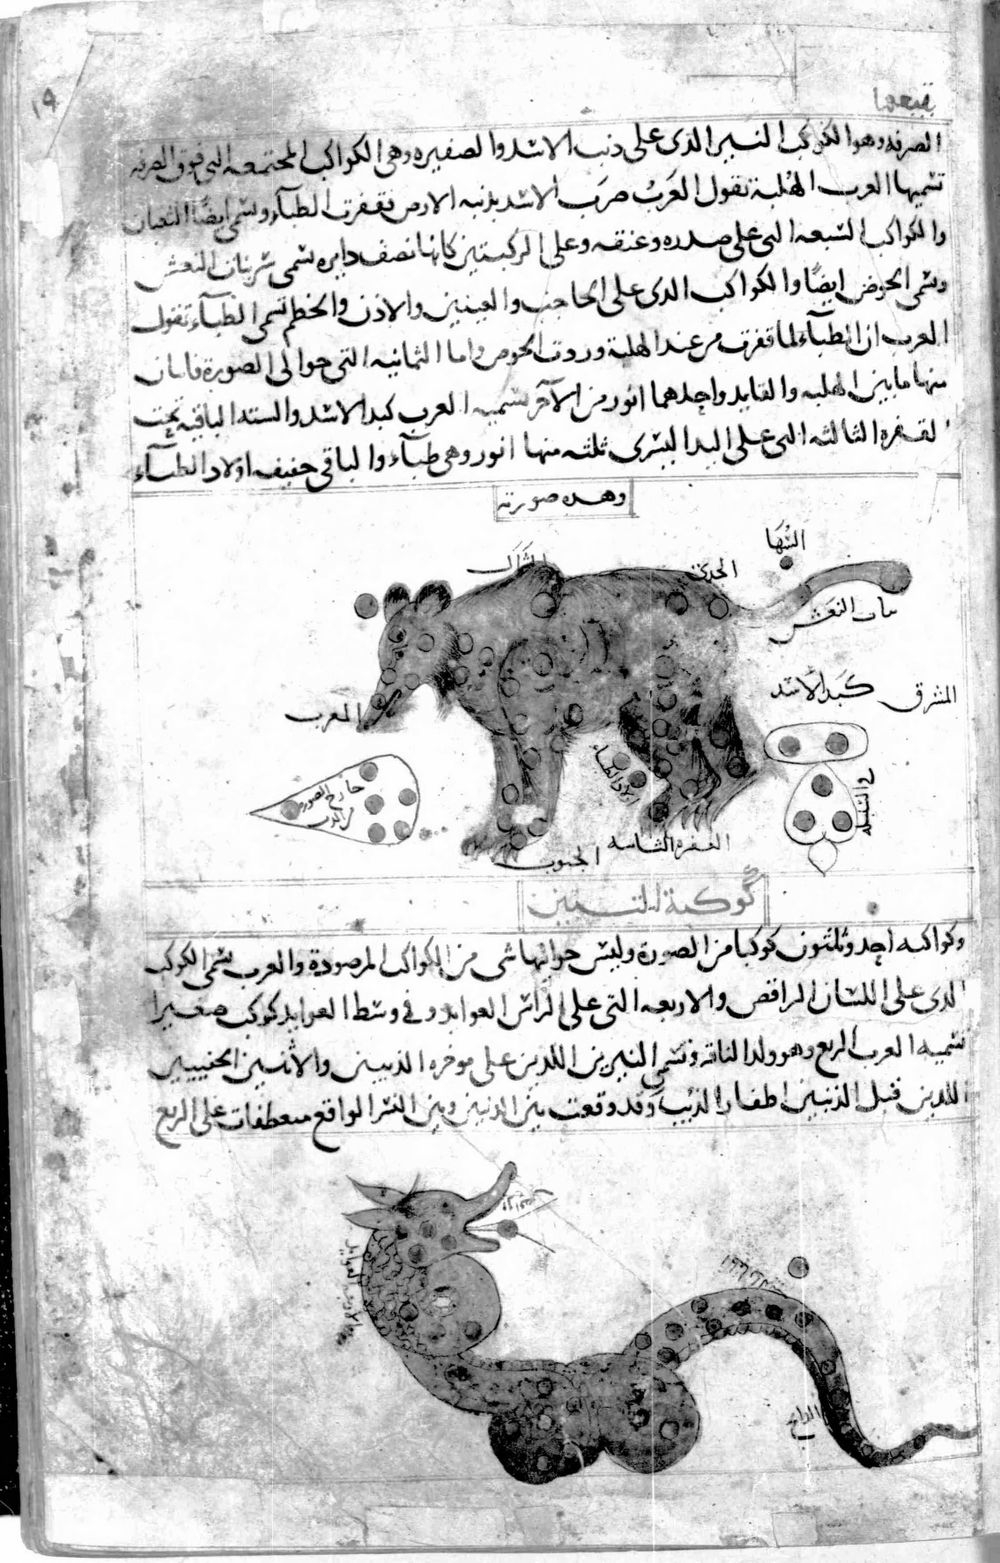 ١٩
يتبعها
الصرفه وهو الكوكب النير الذى على ذنب الاسد والصغيره وهى الكواكب المجتمعه التى فوق الصرفه
تسميها العرب الهلبة تقول العرب ضرب الاسد بذنبه الارض فقفزت الظبآء وتسمى ايضًا الثعبان
والكواكب السبعه التى على صدره وعنقه وعلى الركبتين كانها نصف دايره تسمى سرير بنات النعش
وتسمى الحوض ايضًا والكواكب الذى على الحاجب والعينين والاذن والخطم تسمى الظبآء تقول
العرب ان الظبآء لما قفزت من عند الهلبة وردت الحوض واما الثمانيه التى حوالى الصورة فاثنان
منها ما بين الهلبه والقايد واحدهما انور من الاخر تسميه العرب كبد الاسد والسته الباقيه تحت
القفزه الثالثه التى على اليد اليسرى ثلثه منها انور وهى ظبآء والباقى خفيف اولاد الظبآء
وهذه صورته
السها
الجدى
بنات النعش
كبد الاسد
المشرق
المغرب
خارج الصوره من الدب
اولاد الظباء
الجنوب
كوكبة التنين
وكواكبه احد وثلثون كوكبا من الصورة وليس حواليها شى من الكواكب المرصودة والعرب تسمى الكوكب
الذى على اللسان الراقص والاربعه التى على الراس العوايد وفى وسط العوايد كوكب صغير
تسميه العرب الربع وهو ولد الناقه وتسمى النيرين اللذين على موخره الذيبين والاثنين الخفيين
اللذين قبل الذئبين اظفار الذئب وقد وقعت بين الذئبين وبين النسر الواقع منعطفات على الربع